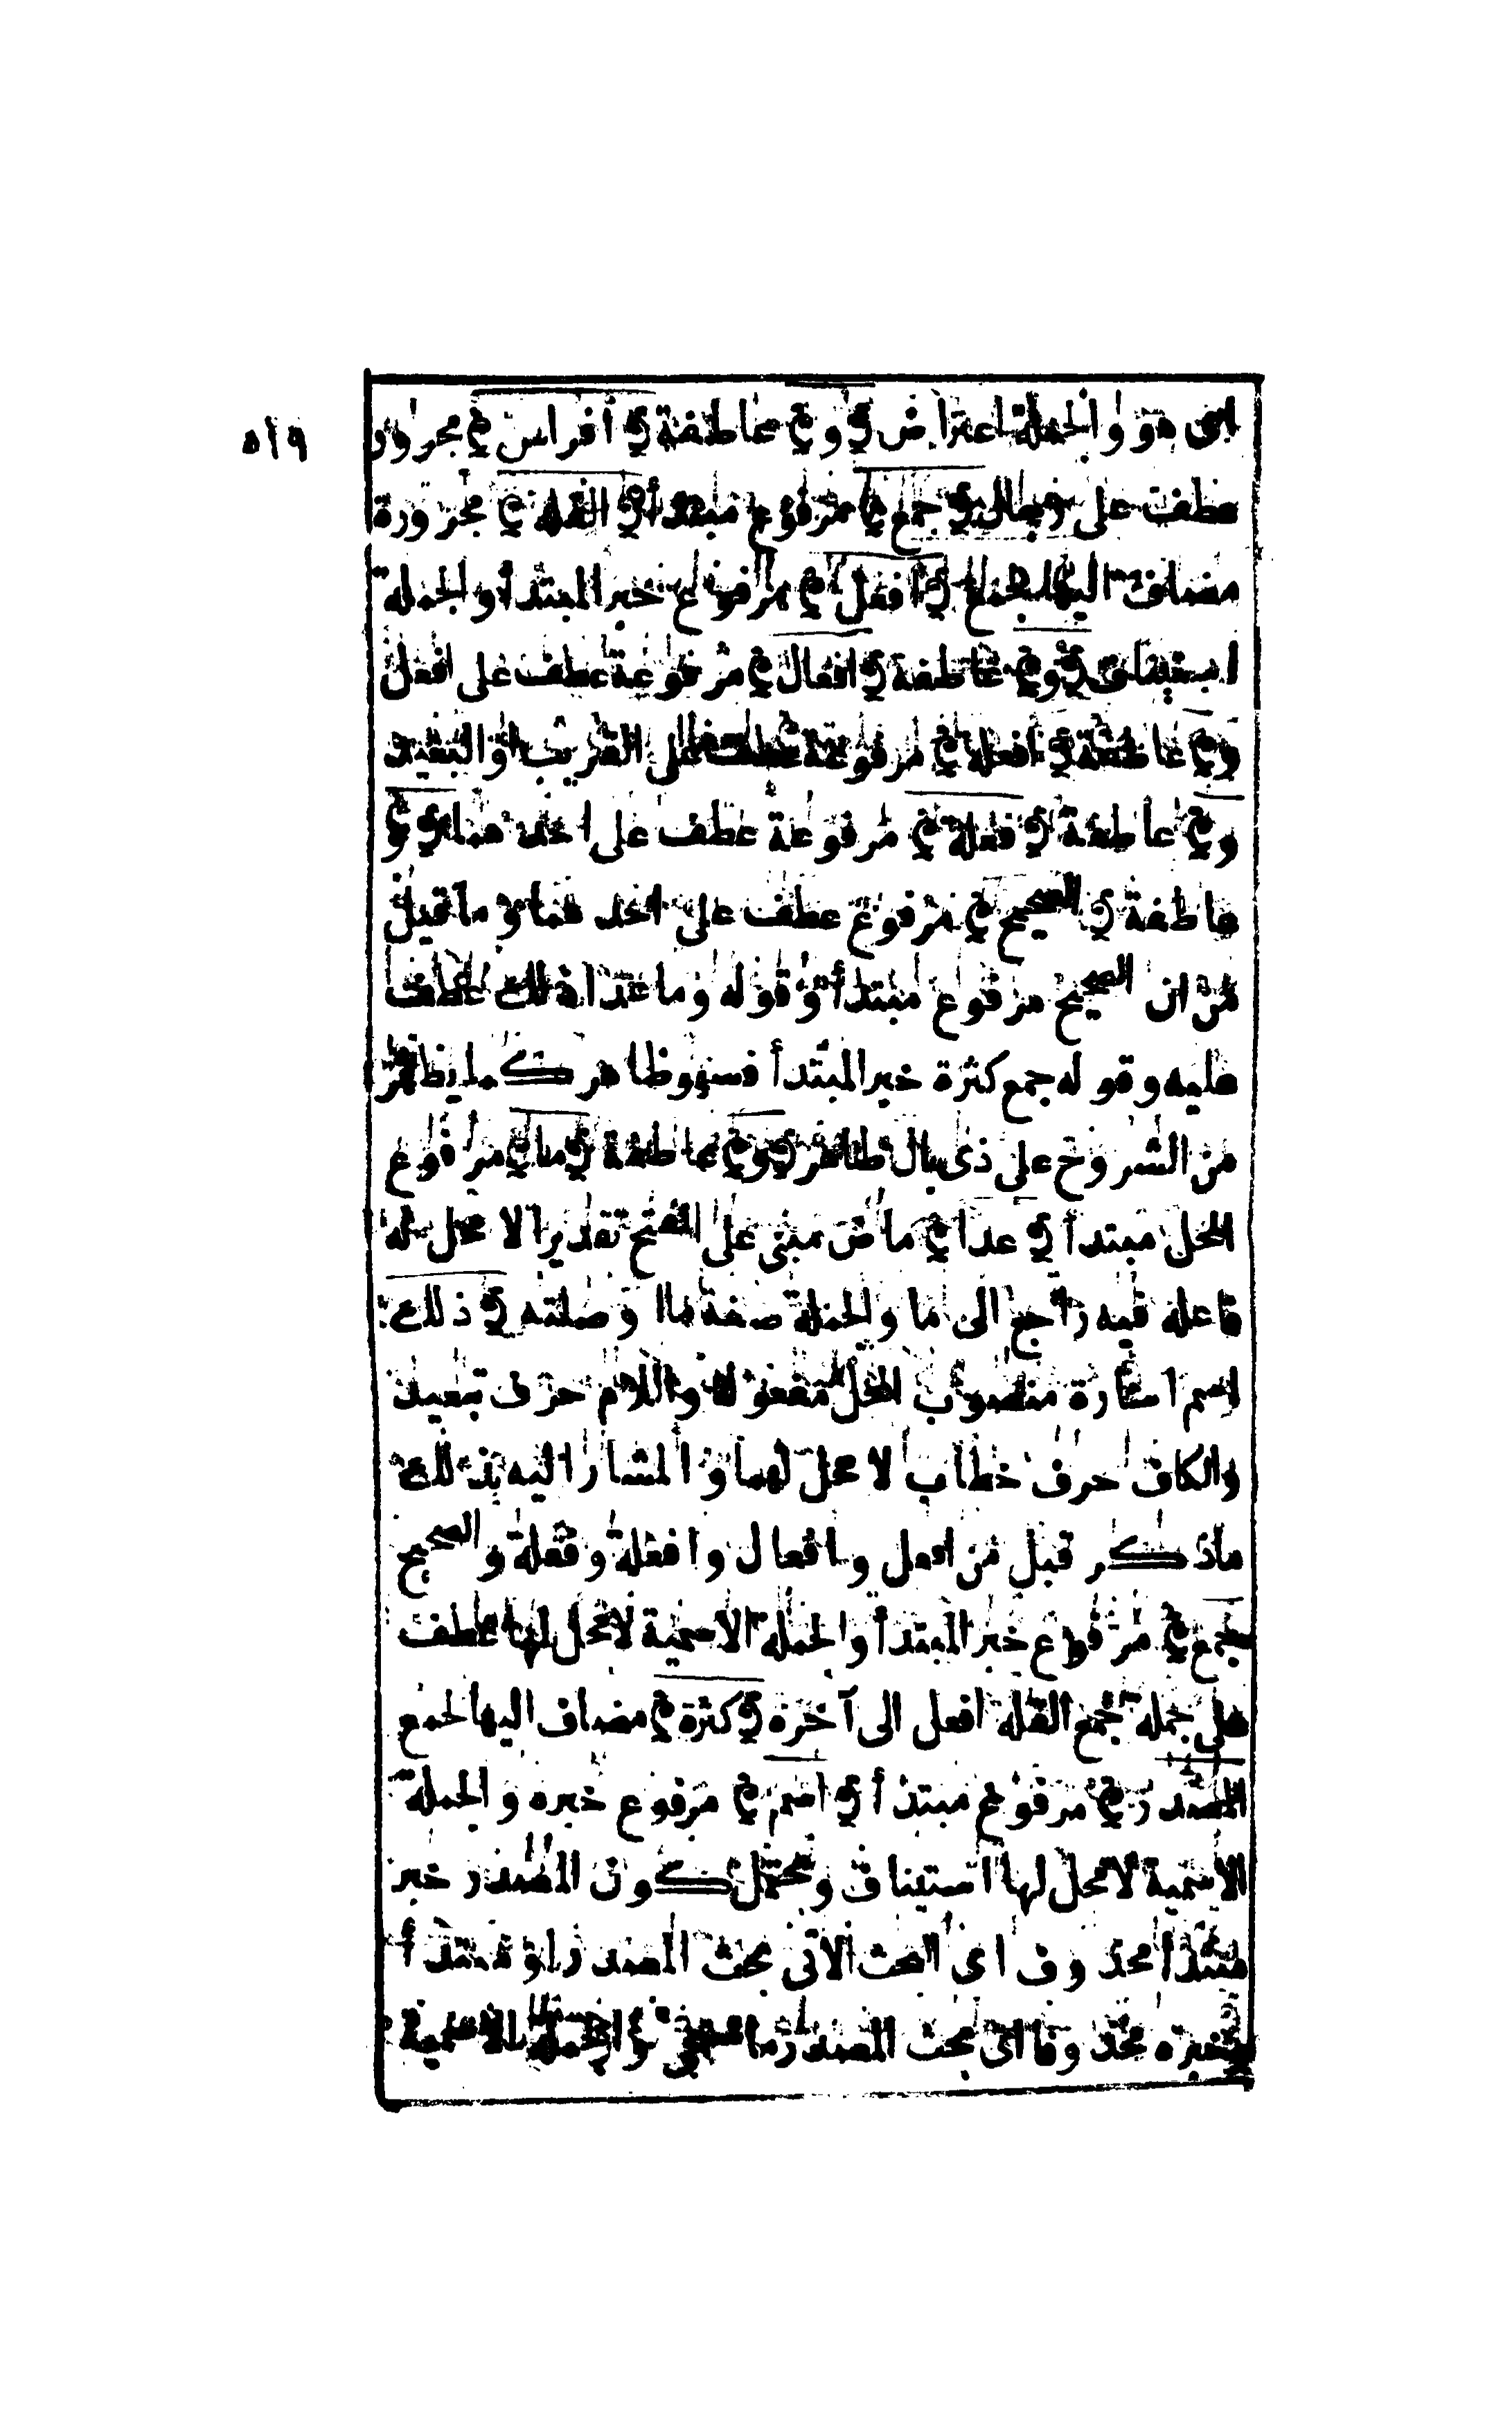 ٥١٩
اى هو والجملة اعتراض ﴿و﴾ عاطفة ﴿أفراس﴾ مجرور
عطف على رجال ﴿جمع﴾ مرفوع مبتدأ ﴿القلة﴾ مجرورة
مضاف اليها لجمع ﴿أفعل﴾ مرفوع خبر المبتدأ والجملة
استيناف ﴿و﴾ عاطفة ﴿افعال﴾ مرفوعة عطف على افعل
﴿و﴾ عاطفة ﴿افعلة﴾ مرفوعة عطف على القريب او البعيد
﴿و﴾ عاطفة ﴿فعلة﴾ مرفوعة عطف على احدهما ﴿و﴾
عاطفة ﴿الصحيح﴾ مرفوع عطف على احدهما وما قيل
من ان الصحيح مرفوع مبتدأ وقوله وما عدا ذلك عطف
عليه وقوله جمع كثرة خبر المبتدأ فسهو ظاهر كما يظهر
من الشروح على ذى بال ظاهر ﴿و﴾ عاطفة ﴿ما﴾ مرفوع
المحل مبتدأ ﴿عدا﴾ ماض مبنى على الفتح تقديرا لا محل له
فاعله فيه راجع الى ما والجملة صفة ما او صلته ﴿ذلك﴾
اسم اشارة منصوب المحل مفعوله واللام حرف تبعيد
والكاف حرف خطاب لا محل لهما والمشار اليه بذلك
ماذكر قبل من افعل وافعال وافعلة وفعلة والصحيح
﴿جمع﴾ مرفوع خبر المبتدأ والجملة الاسمية لا محل لها عطف
على جملة جمع القلة افعل الى آخره ﴿كثرة﴾ مضاف اليها لجمع
﴿المصدر﴾ مرفوع مبتدأ ﴿اسم﴾ مرفوع خبره والجملة
الاسمية لا محل لها استيناف ويحتمل كون المصدر خبر
مبتدأ محذوف اى البحث الآتى بحث المصدر او مبتدأ
خبره محذوفا اى بحث المصدر ما والجملة الاسمية